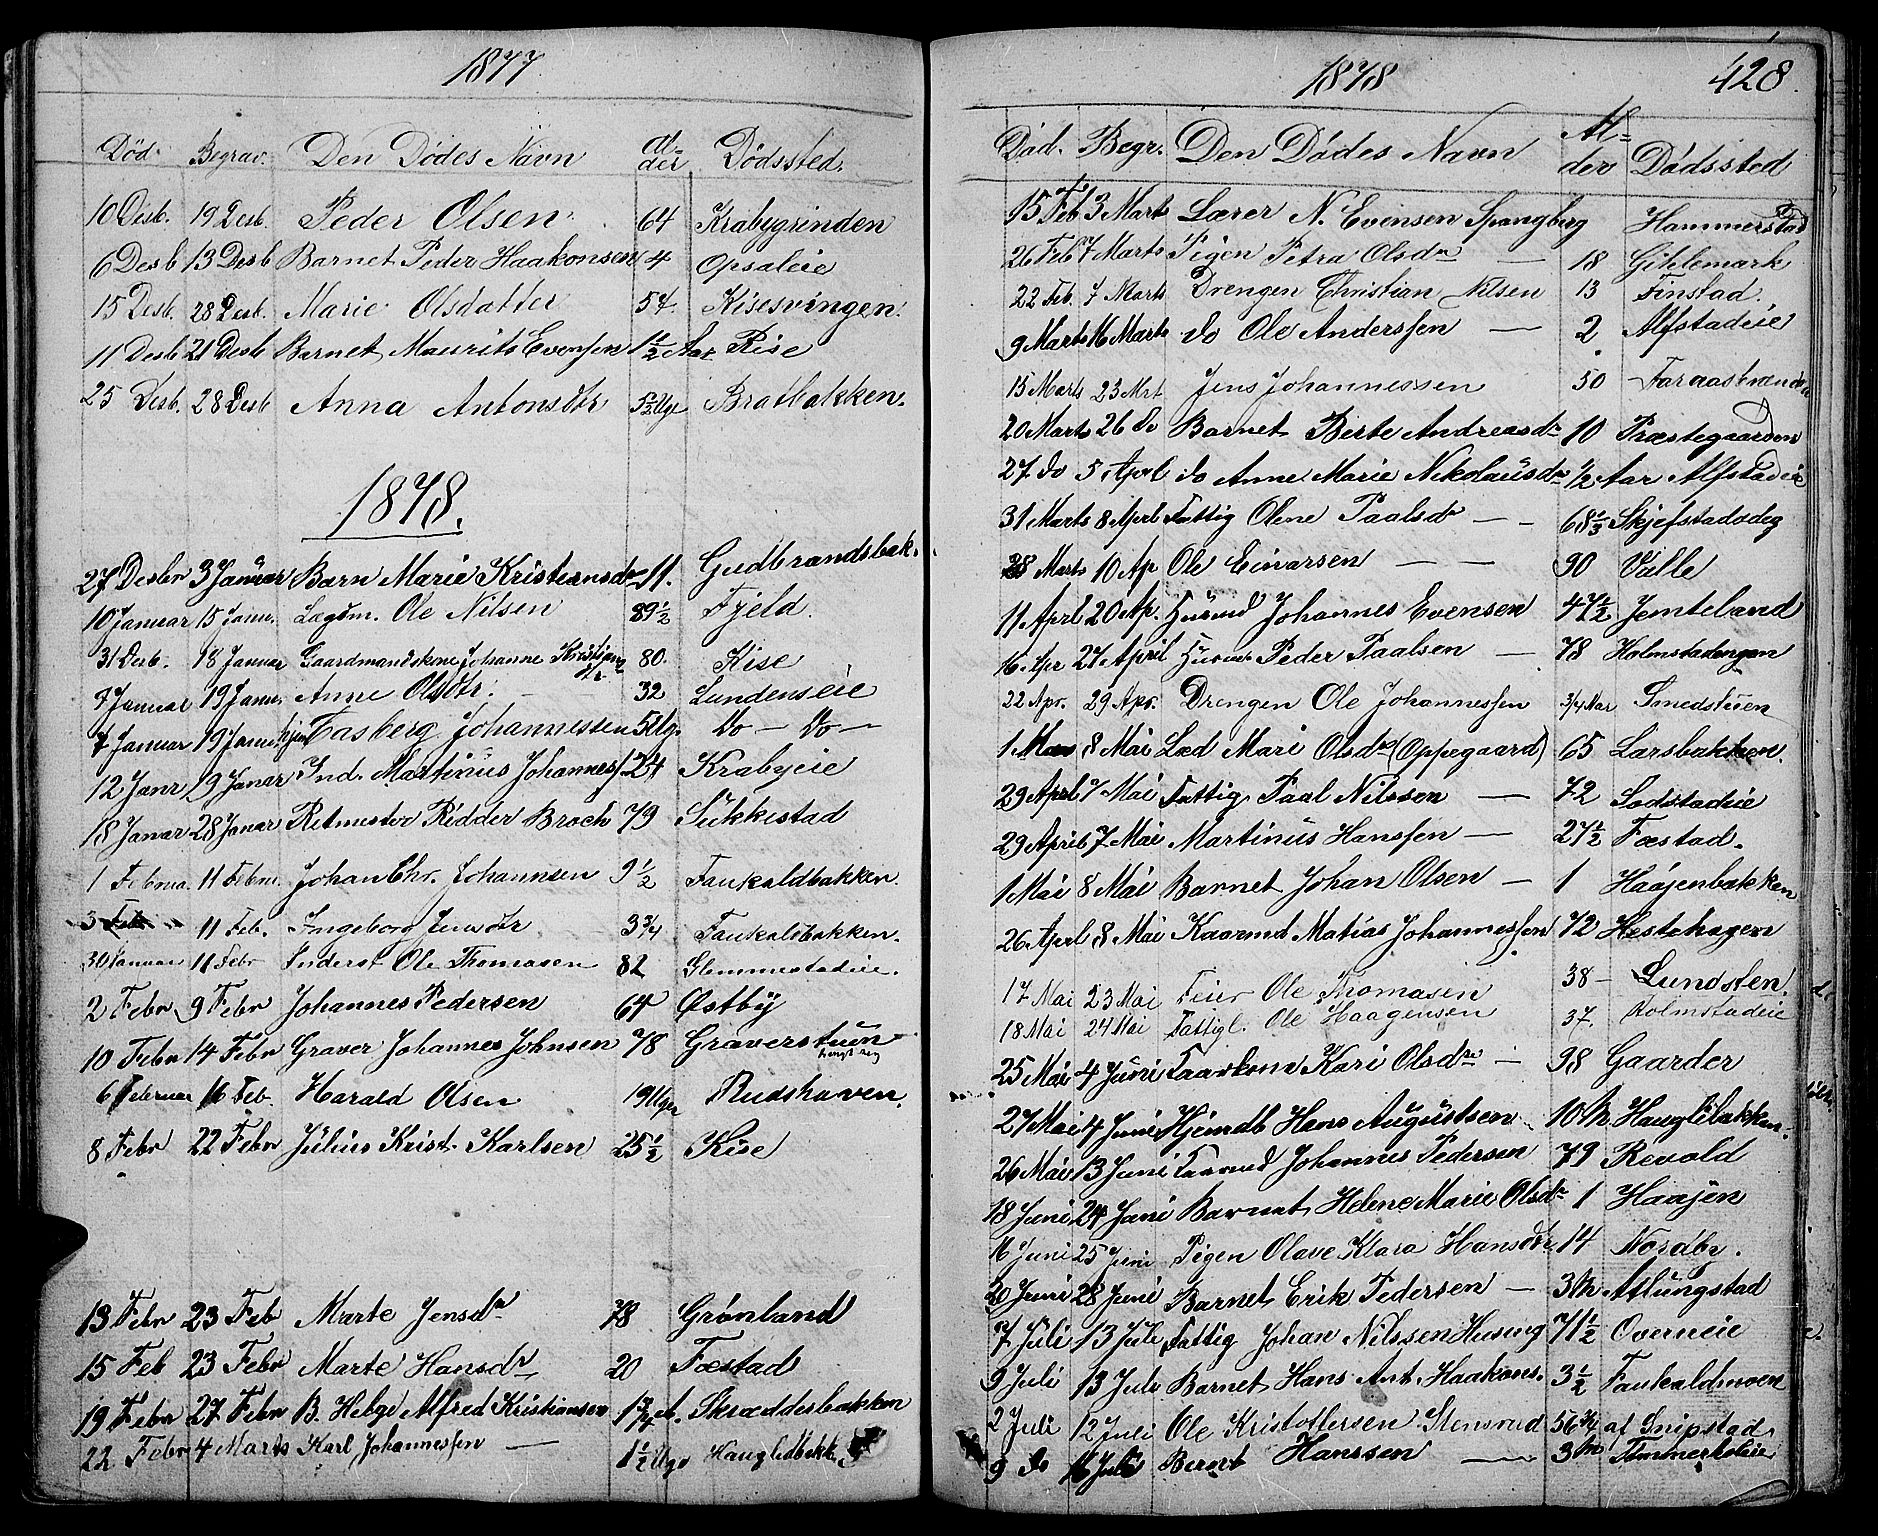 1877.
Död. Begrav. Den Dödes Navn Al-der Dödssted.
10 Desb. 19 Desb. Peder Olsen 64 Krabygrinden
6 Desb 13 Desb Barnet Peder Haakonsen 4 Opsaleie
15 Desb. 28 Desb. Marie Olsdatter 54. Kisesvingen.
11 Desb 21 Desb Barnet Maurits Evensen 1 1/2 Aar Rise
25 Desb. 28 Desb Anna Antonsdtr 5 1/2 Uge Bratbakken.
1878.
27 Desbr 3 Januar Barn Marie Kristiansdr 11. Gudbrandsbak.
10 Januar 15 Janu. Lægdm. Ole Nilsen 89 1/2 Fjeld.
31 Desb. 18 Januar Gaardmandskone Johanne Kristiansdtr 80. Kise
7 Januar 19 Janu. Anne Olsdtr. 32 Lundenseie
7 Januar 19 Janu. Tasberg Johannessen 5 Uge. Do — Do —
12 Janr 19 Janar Ind. Martinus Johannes. 24 Krabyeie
18 Janar 28 Janar Ritmester Ridder Broch 79 Sukkestad
1 Februa. 11 Febru. Johan Chr. Johannsen 9 1/2 Faukaldbakken.
3 Feb 11 Feb. Ingeborg Jensdtr 3 3/4 Faukalbakken.
30 Januar 11 Febr Inderst Ole Thomasen 82 Glemmestadeie.
2 Febr 9 Febr Johannes Pedersen 64 Østby
10 Febr 14 Febr Graver Johannes Johnsen 78 Graverstuen
hengt seg
6 Februar 16 Feb. Harald Olsen 19 Uger Rudshaven.
8 Febr 22 Febr Julius Krist. Karlsen 25 1/2 Kise
13 Febr 23 Feb Marte Jensdr 78 Grønland
15 Feb 23 Febr Marte Hansdr 20 Fæstad
19 Febr 27 Febr B. Helge Alfred Kristiansen 1 3/4 A. Skreddesbakken
22 Febr 4 Marts Karl Johannessen — 1 1/2 Uge Hauglidbakk
1878 428.
Död. Begr. Den Dödes Navn Al-der Dödssted
15 Feb 3 Marts Lærer N. Evensen Spangberg Hammerstad
26 Feb 7 Marts Pigen Petra Olsdr — 18 Gihlemark
22 Feb. 7 Marts Drengen Christian Nilsen 13 Finstad.
9 Marts 16 Marts do Ole Anderssen — 2 Alfstadeie
15 Marts 23 Mrt Jens Johannessen 50 Faraasbrænden
20 Marts 26 Do Barnet Berte Andreasdr 10 Præstegaarden
27 do 5 April do Anne Marie Nikolausdr 1/2 Aar Alfstadeie
31 Marts 8 Aprl Fattig Olene Paalsdr — 68 1/2 Skjefstadsdeg
28 Marts 10 Ap Ole Einarsen — 90 Valle
11 Aprl 20 Ap. Husmd Johannes Evensen 47 1/2 Jemteland
16. Apr 27 April Husmd Peder Paalsen — 78 Holmstadengen
22 Apr. 29 Apr. Drengen Ole Johannessen 3/4 Aar Smedstuen
1 Mai 8 Mai Læd Mari Olsdr (Oppegaard) 65 Larsbakken.
29 Aprl 7 Mai Fattig Paal Nilssen — 72 Sodstadeie
29 April 7 Mai Martinus Hanssen — 27 1/2 Fæstad.
1 Mai 8 Mai Barnet Johan Olsen — 1 Haajenbakken
26 Aprl 8 Mai Kaarmd Matias Johannessen 72 Hestehagen
17 Mai 23 Mai Feier Ole Thomasen 38 — Lundsten.
18 Mai 24 Mai Fattigl. Ole Haagensen 37. Holmstadeie
25 Mai 4 Juni Kaarkone Kari Olsdr — 98 Gaarder
27 Mai 4 Juni Hjemdb Hans Augustsen 10 M Hauglibakken.
26 Mai 13 Juni Kaarmd Johannes Pedersen 79 Revold
18 Juni 24 Juni Barnet Helene Marie Olsdr 1 Haajen
16 Juni 25 Juni Pigen Olave Klara Hansdtr 14 Nordby.
20 Juni 28 Juni Barnet Erik Pedersen — 3 M Atlungstad
7 Juli 13 Juli Fattig Johan Nilssen Husing 71 1/2 Overneie
9 Juli 13 Juli Barnet Hans Ant. Haakons. 3 1/2 Faukaldmoen
2 Juli 12 Juli Ole Kristoffersen Stensrud 56 3/4 af Snipstad
9 do 16 Juli Bernt Hanssen — 3 M Tømmerholeie